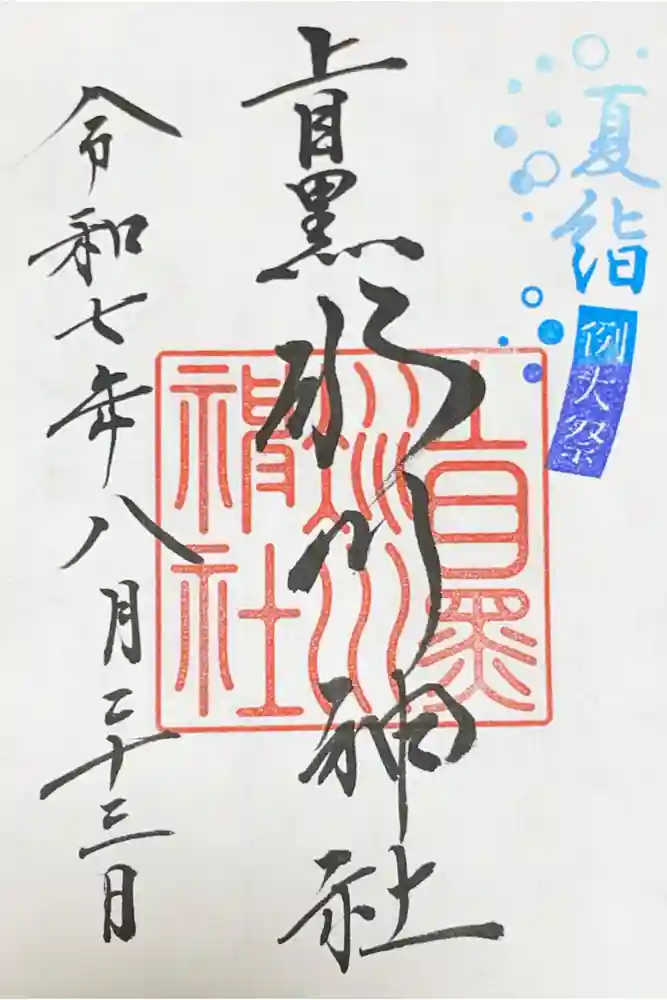 夏詣
例大祭
上目黒氷川神社
上目黒
氷川
神社
令和七年八月二十三日